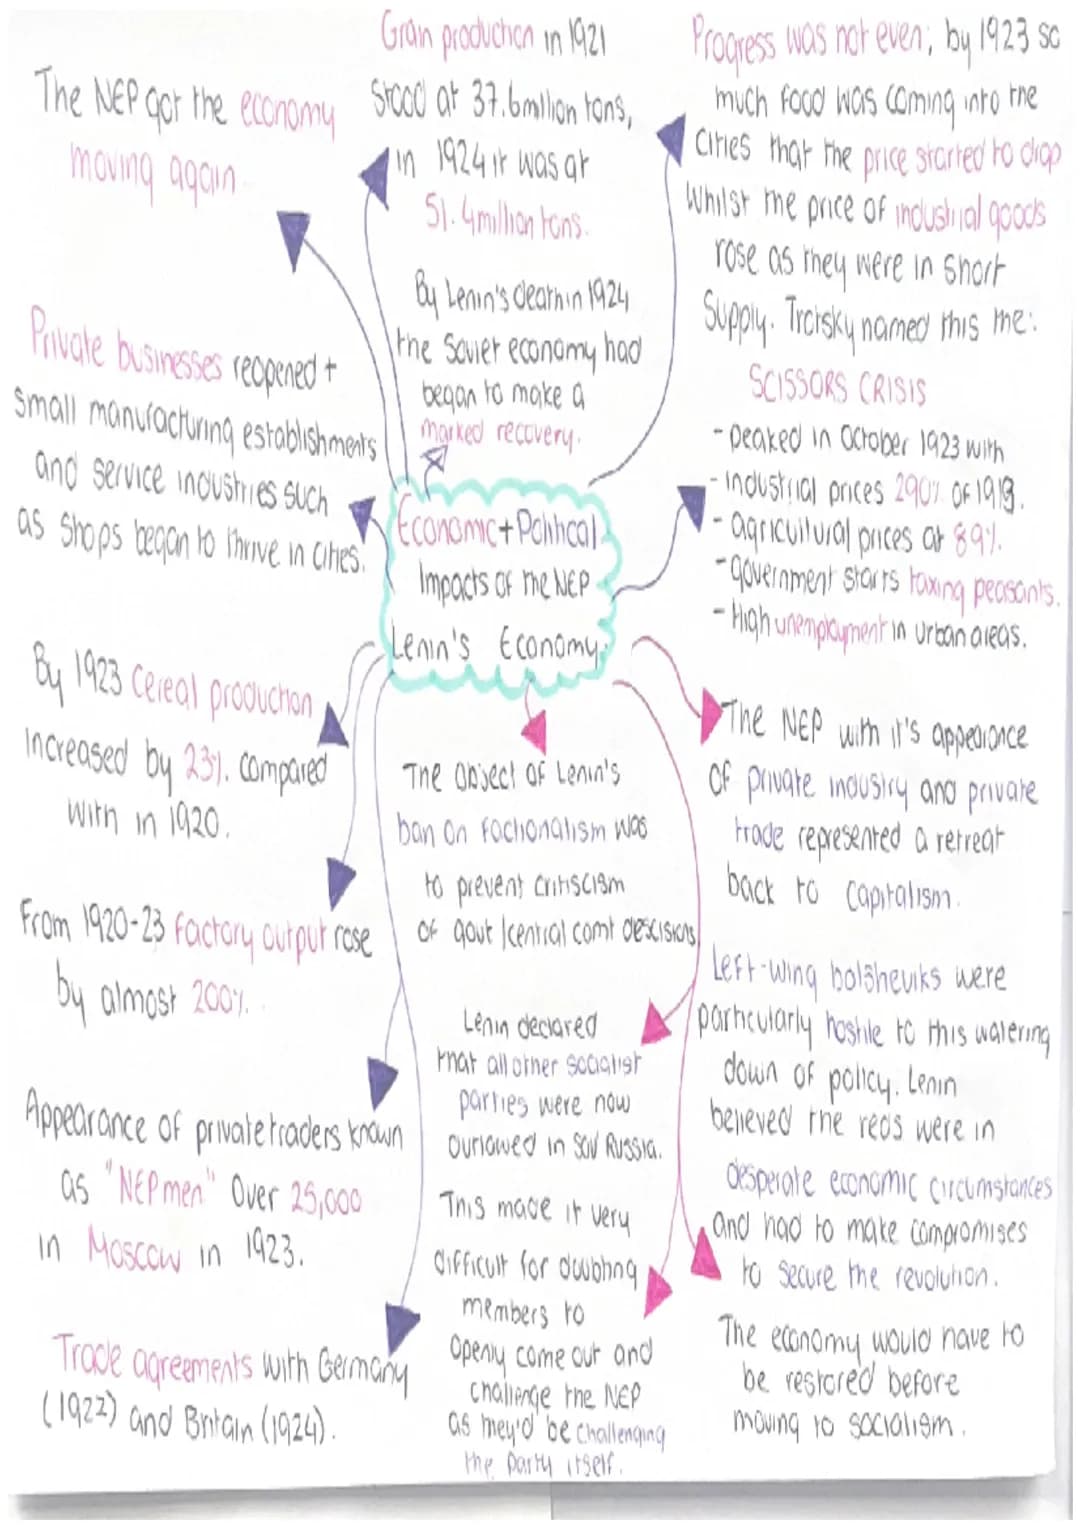 The NEP got the economy
moving again.
Grain production in 1921
stood at 37.6million tons,
in 1924 it was at
51.4million tons.
By Lenin's death in 1924,
the Soviet economy had
began to make a
marked recovery.
Progress was not even; by 1923 so
much food was coming into the
cities that the price started to drop
whilst the price of industrial goods
rose as they were in short
supply. Trotsky named this the:
SCISSORS CRISIS
- peaked in October 1923 with
- industrial prices 290% of 1913.
- agricultural prices at 89%.
- government starts taxing peasants.
- High unemployment in urban areas.
Private businesses reopened +
small manufacturing establishments
and service industries such
as shops began to thrive in cities.
Economic + Political
Impacts of the NEP
Lenin's Economy.
By 1923 Cereal production
increased by 23% compared
with in 1920.
From 1920-23 factory output rose
by almost 200%.
Appearance of private traders known
as "NEPmen" Over 25,000
in Moscow in 1923.
Trade agreements with Germany
(1922) and Britain (1924).
The object of Lenin's
ban on factionalism was
to prevent critiscism
of govt/central comt descisions
Lenin declared
that all other socialist
parties were now
outlawed in Sov Russia.
This made it very
difficult for doubting
members to
openly come out and
challenge the NEP
as they'd be challenging
the party itself.
The NEP with it's appearance
of private industry and private
trade represented a retreat
back to capitalism.
Left-wing bolsheviks were
particularly hostile to this watering
down of policy. Lenin
believed the reds were in
desperate economic circumstances
and had to make compromises
to secure the revolution.
The economy would have to
be restored before
moving to socialism.